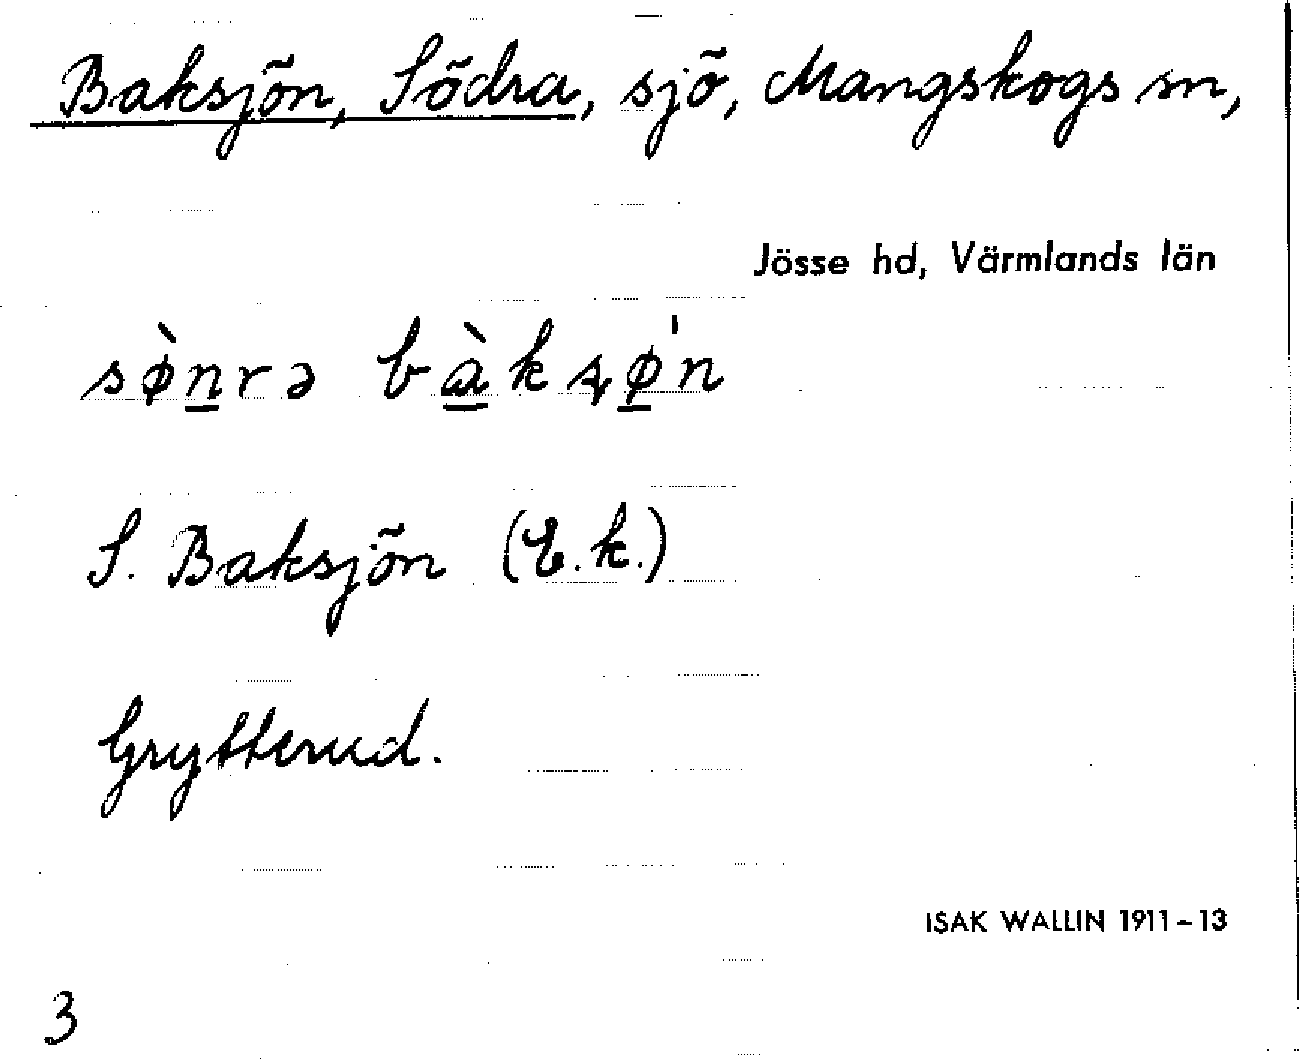 Baksjön, Södra, sjö, Mangskogs sn,
Jösse hd, Värmlands län
sø̀n̲rə bà̲kʂø̲'n
S. Baksjön (E.k.)
Grytterud.
ISAK WALLIN 1911-13
3